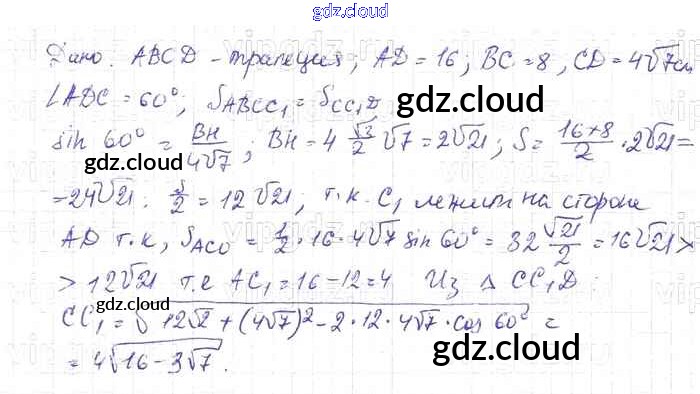 gdz.cloud
Дано: ABCD - трапеция, AD = 16; BC = 8, CD = 4√7см
∠ADC = 60°; S_ABCC₁ = S_CC₁D
gdz.cloud
sin 60° = BH/4√7; BH = 4 √3/2 √7 = 2√21; S = (16+8)/2 · 2√21 =
gdz.cloud
= 24√21. S/2 = 12√21, т.к. C₁ лежит на стороне
AD т.к, S_ACD = 1/2 · 16 · 4√7 sin 60° = 32 √21/2 = 16√21 >
> 12√21 т.е AC₁ = 16 - 12 = 4 Из Δ CC₁D
gdz.cloud
CC₁ = √12√2 + (4√7)² - 2 · 12 · 4√7 · cos 60° =
gdz.cloud
= 4√16 - 3√7.
gdz.cloud